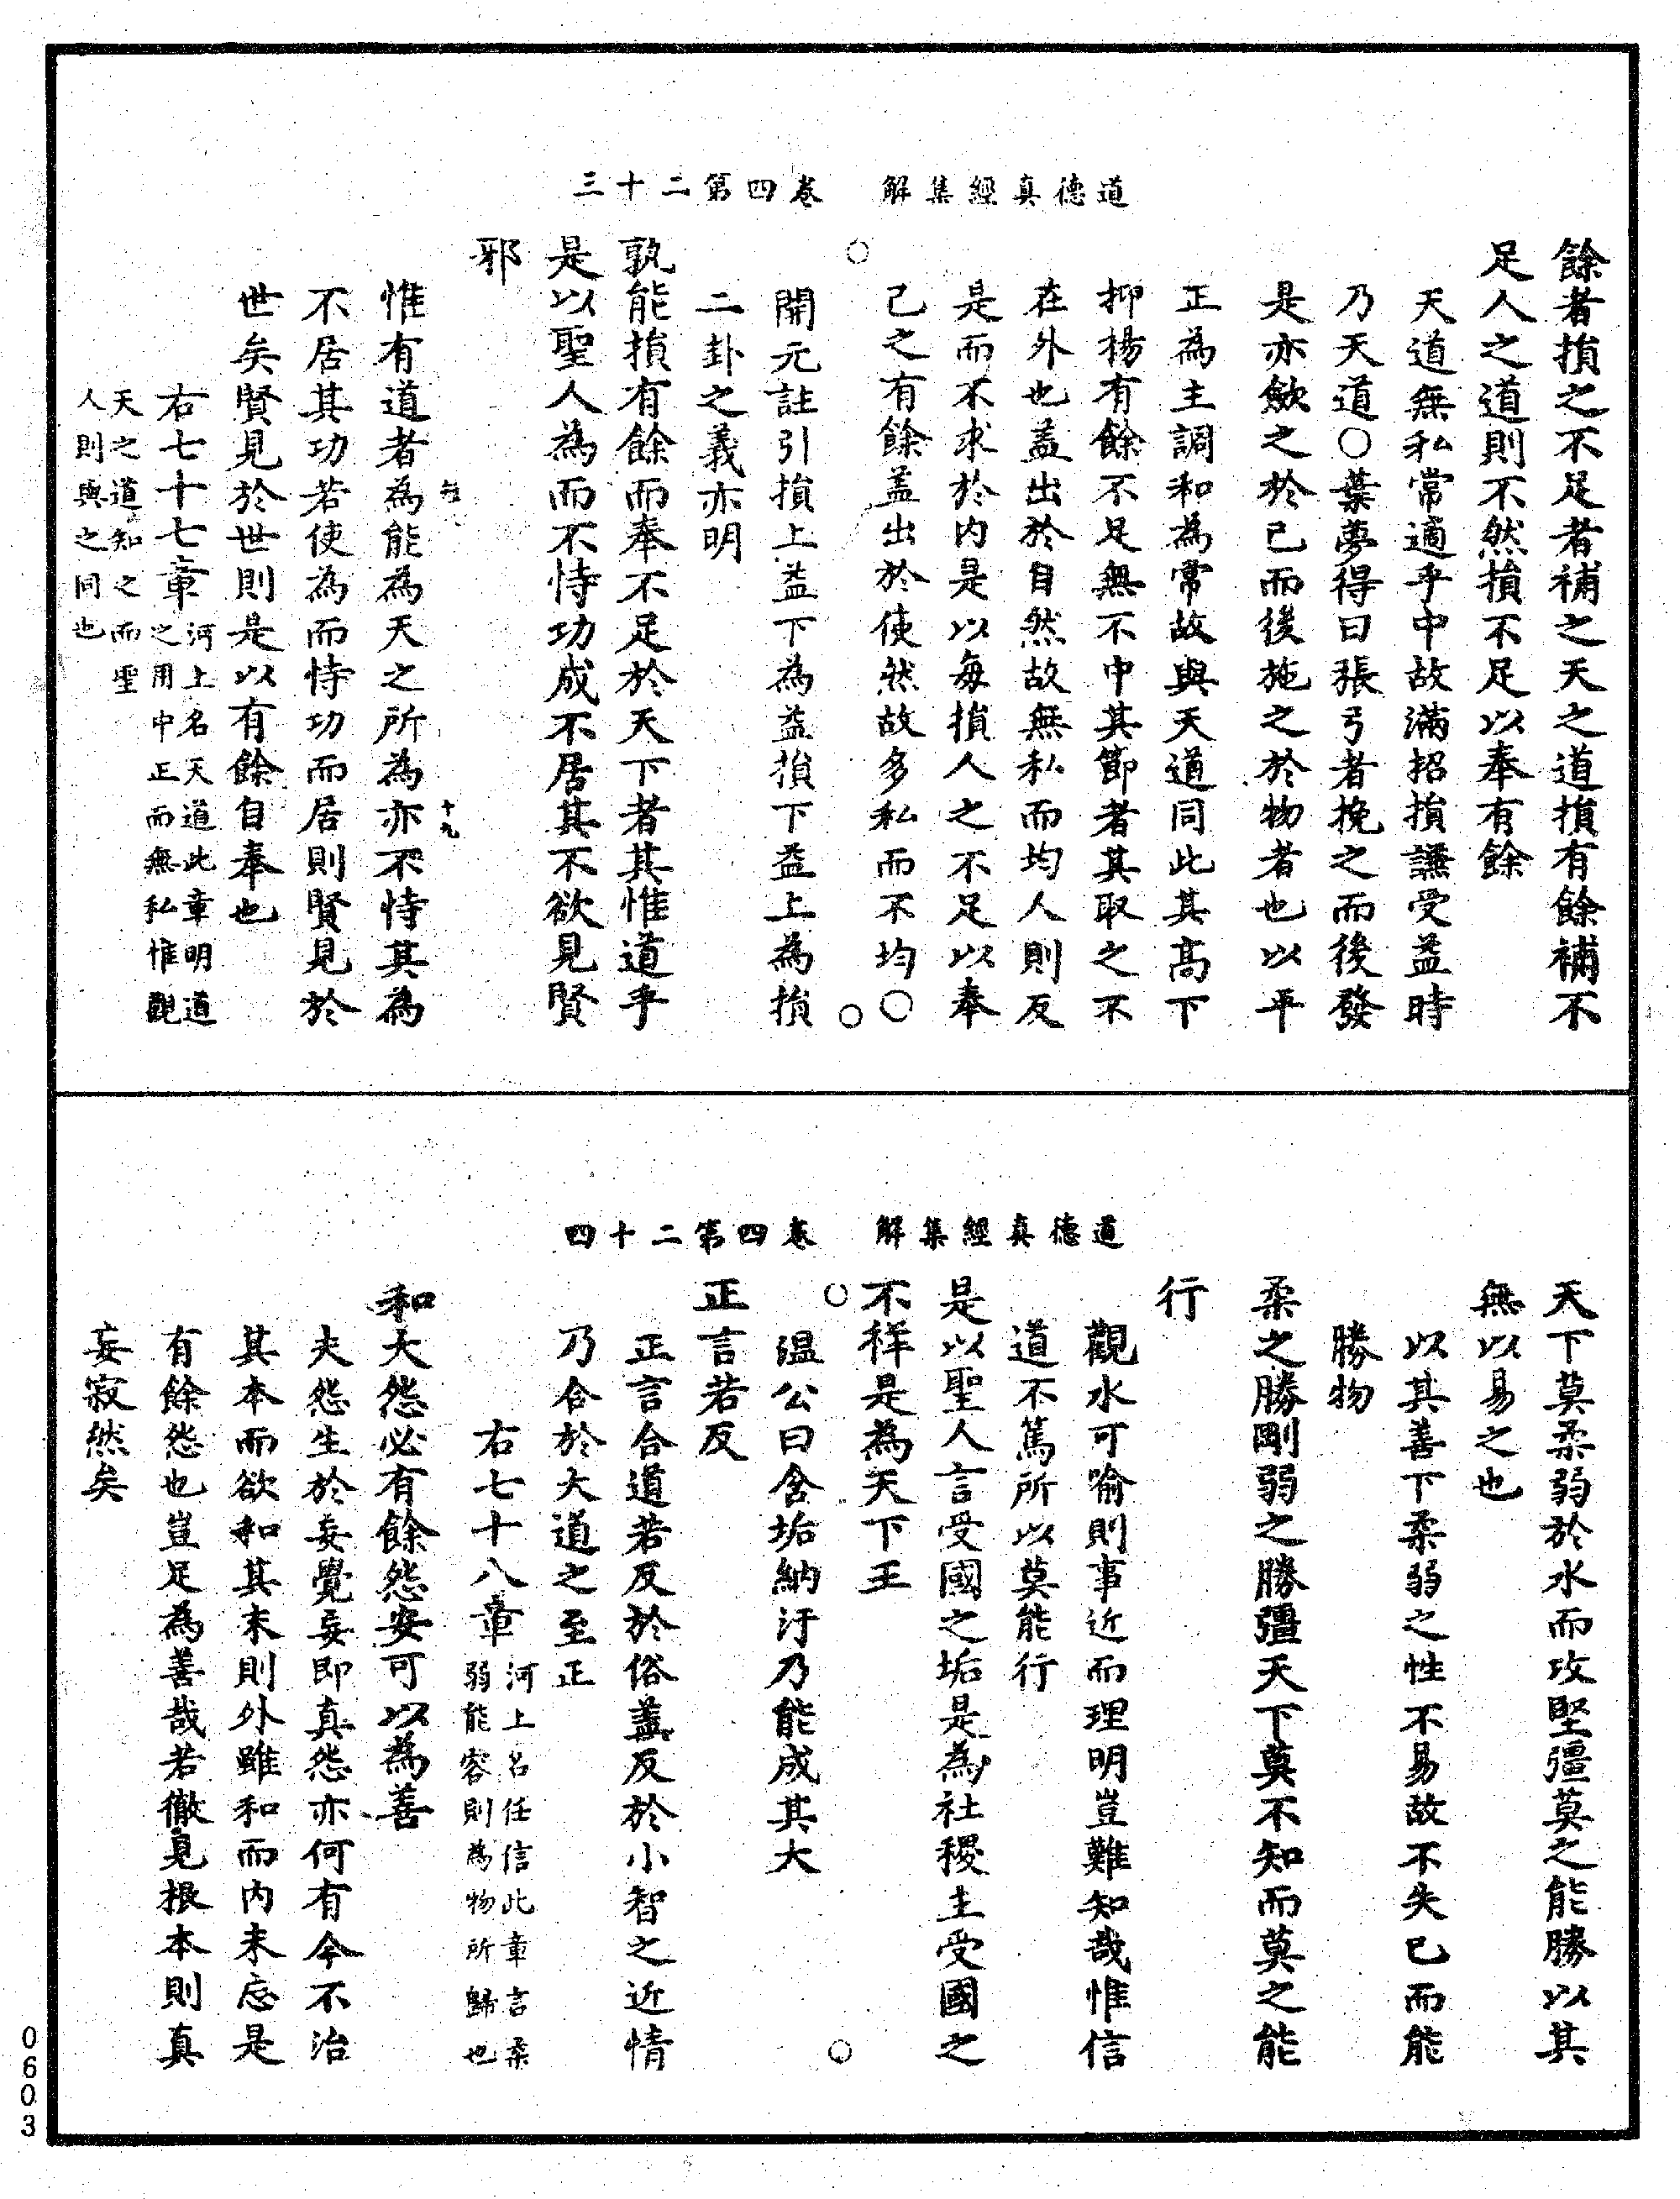 道德真經集解　卷四第二十三
餘者損之不足者補之天之道損有餘補不
足人之道則不然損不足以奉有餘
天道無私常適乎中故滿招損謙受益時
乃天道○葉夢得曰張弓者挽之而後發
是亦歛之於己而後施之於物者也以平
正為主調和為常故與天道同此其高下
抑揚有餘不足無不中其節者其取之不
在外也盖出於自然故無私而均人則反
是而不求於内是以每損人之不足以奉
己之有餘盖出於使然故多私而不均○
開元註引損上益下為益損下益上為損
二卦之義亦明
孰能損有餘而奉不足於天下者其惟道乎
是以聖人為而不恃功成不居其不欲見賢
邪
十九
惟有道者為能為天之所為亦不恃其為
不居其功若使為而恃功而居則賢見於
世矣賢見於世則是以有餘自奉也
右七十七章河上名天道此章明道
之用中正而無私惟觀
天之道知之而聖
人則與之同也
道德真經集解　卷四第二十四
天下莫柔弱於水而攻堅彊莫之能勝以其
無以易之也
以其善下柔弱之性不易故不失已而能
勝物
柔之勝剛弱之勝彊天下莫不知而莫之能
行
觀水可喻則事近而理明豈難知哉惟信
道不篤所以莫能行
是以聖人言受國之垢是為社稷主受國之
不祥是為天下王
温公曰含垢納汙乃能成其大
正言若反
正言合道若反於俗盖反於小智之近情
乃合於大道之至正
右七十八章河上名任信此章言柔
弱能容則為物所歸也
和大怨必有餘怨安可以為善
夫怨生於妄覺妄即真怨亦何有今不治
其本而欲和其末則外雖和而内未忘是
有餘怨也豈足為善哉若徹見根本則真
妄寂然矣
0603